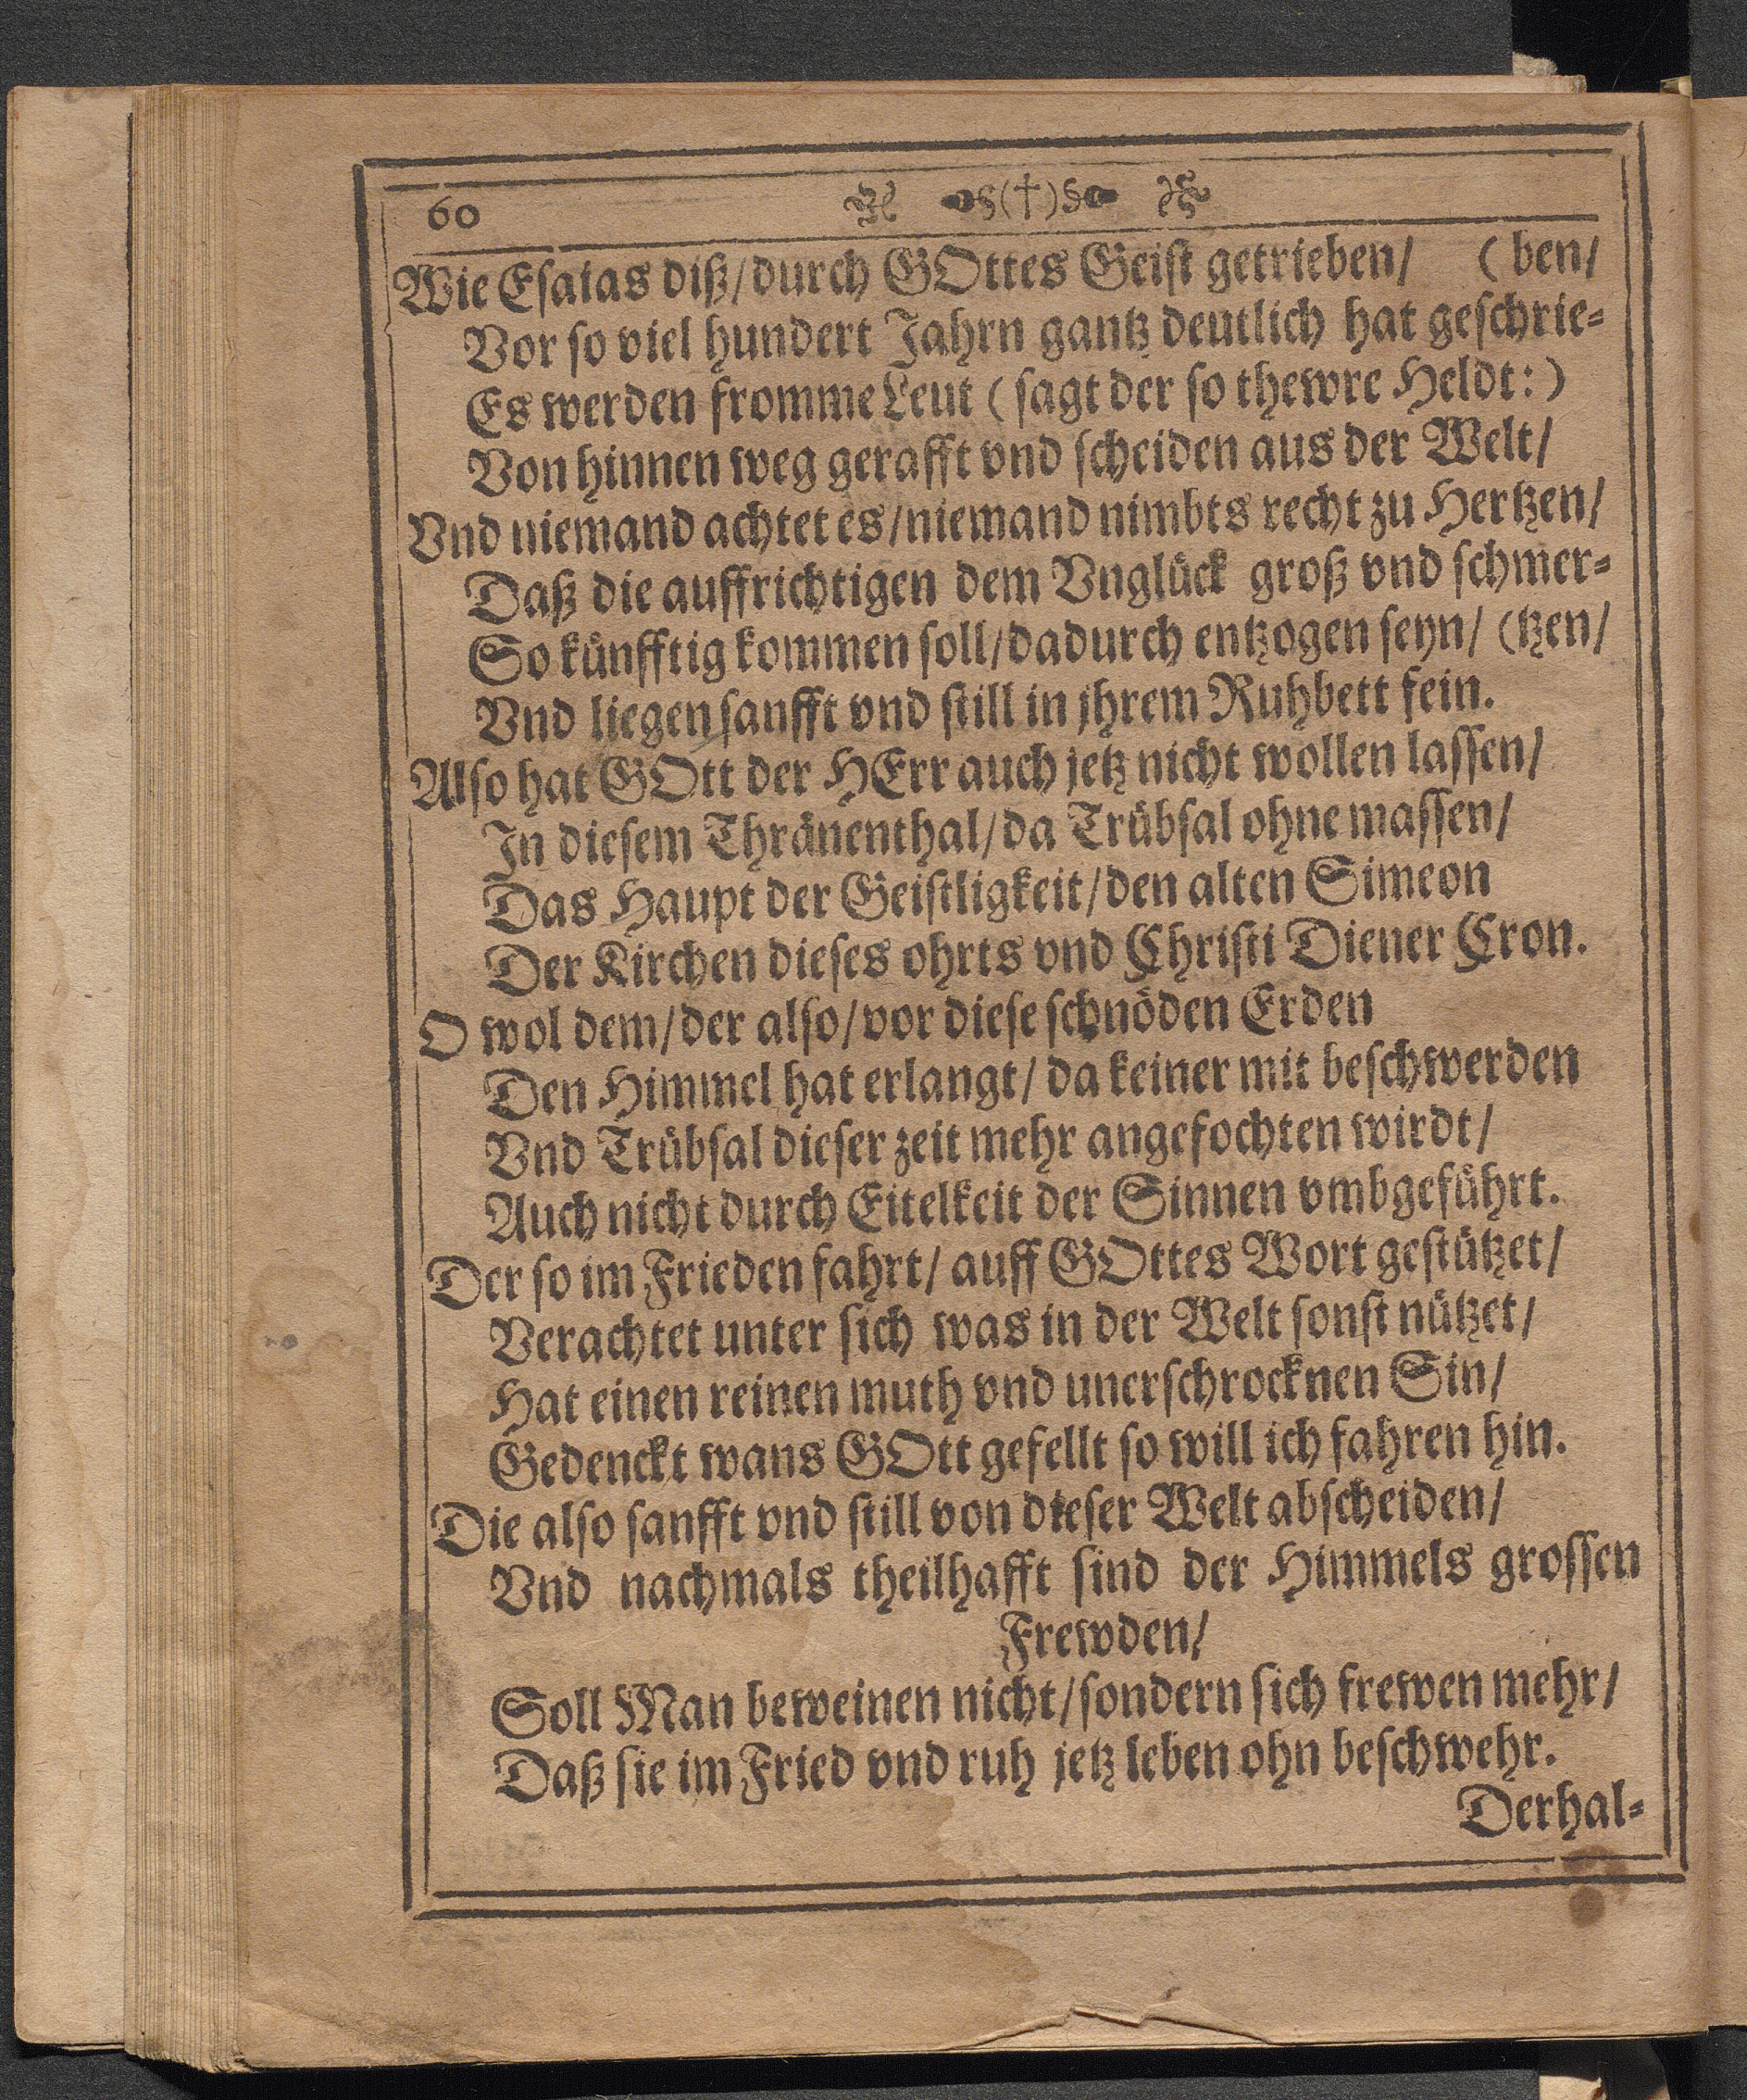 60 §(†)§
Wie Eſaias diß/durch GOttes Geiſt getrieben/ (ben/
Vor ſo viel hundert Jahrn gantz deutlich hat geſchrie⸗
Es werden fromme Leut (ſagt der ſo thewre Heldt:)
Von hinnen weg gerafft vnd ſcheiden aus der Welt/
Vnd niemand achtet es/niemand nimbts recht zu Hertzen/
Daß die auffrichtigen dem Vnglück groß vnd ſchmer⸗
So künfftig kommen ſoll/dadurch entzogen ſeyn/ (tzen/
Vnd liegen ſanfft vnd ſtill in jhrem Ruhbett fein.
Alſo hat GOtt der HErr auch jetz nicht wollen laſſen/
In dieſem Thränenthal/da Trübſal ohne maſſen/
Das Haupt der Geiſtligkeit/den alten Simeon
Der Kirchen dieſes ohrts vnd Chriſti Diener Cron.
O wol dem/der alſo/vor dieſe ſchnöden Erden
Den Himmel hat erlangt/ da keiner mit beſchwerden
Vnd Trübſal dieſer zeit mehr angefochten wirdt/
Auch nicht durch Eitelkeit der Sinnen vmbgeführt.
Der ſo im Frieden fahrt/ auff GOttes Wort geſtützet/
Verachtet unter ſich was in der Welt ſonſt nützet/
Hat einen reinen muth vnd unerſchrocknen Sin/
Gedenckt wans GOtt gefellt ſo will ich fahren hin.
Die alſo ſanfft vnd ſtill von dieſer Welt abſcheiden/
Vnd nachmals theilhafft ſind der Himmels groſſen
Frewden/
Soll Man beweinen nicht/ſondern ſich frewen mehr/
Daß ſie im Fried vnd ruh jetz leben ohn beſchwehr.
Derhal⸗